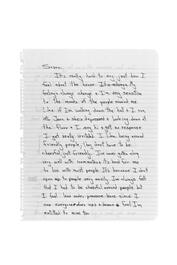 Sincere.
It's really hard to say just how I
feel about the house. It's strange. My
feelings change + I'm very sensitive
to the moods of the people around me
like if I'm walking down the hall + I run
into Jane + she's depressed + looking down at
the floor + I say hi + get no response
I get really irritated. I like being around
friendly people, they don't have to be
cheerful, just friendly. I've never gotten along
very well with roommates + its been hard for me
to live with most people. It's because I don't
open up to people very easily. I've always felt
that I had to be cheerful around people but
I feel less under pressure here since
one everyone does has a down + feel I'm
entitled to mine too